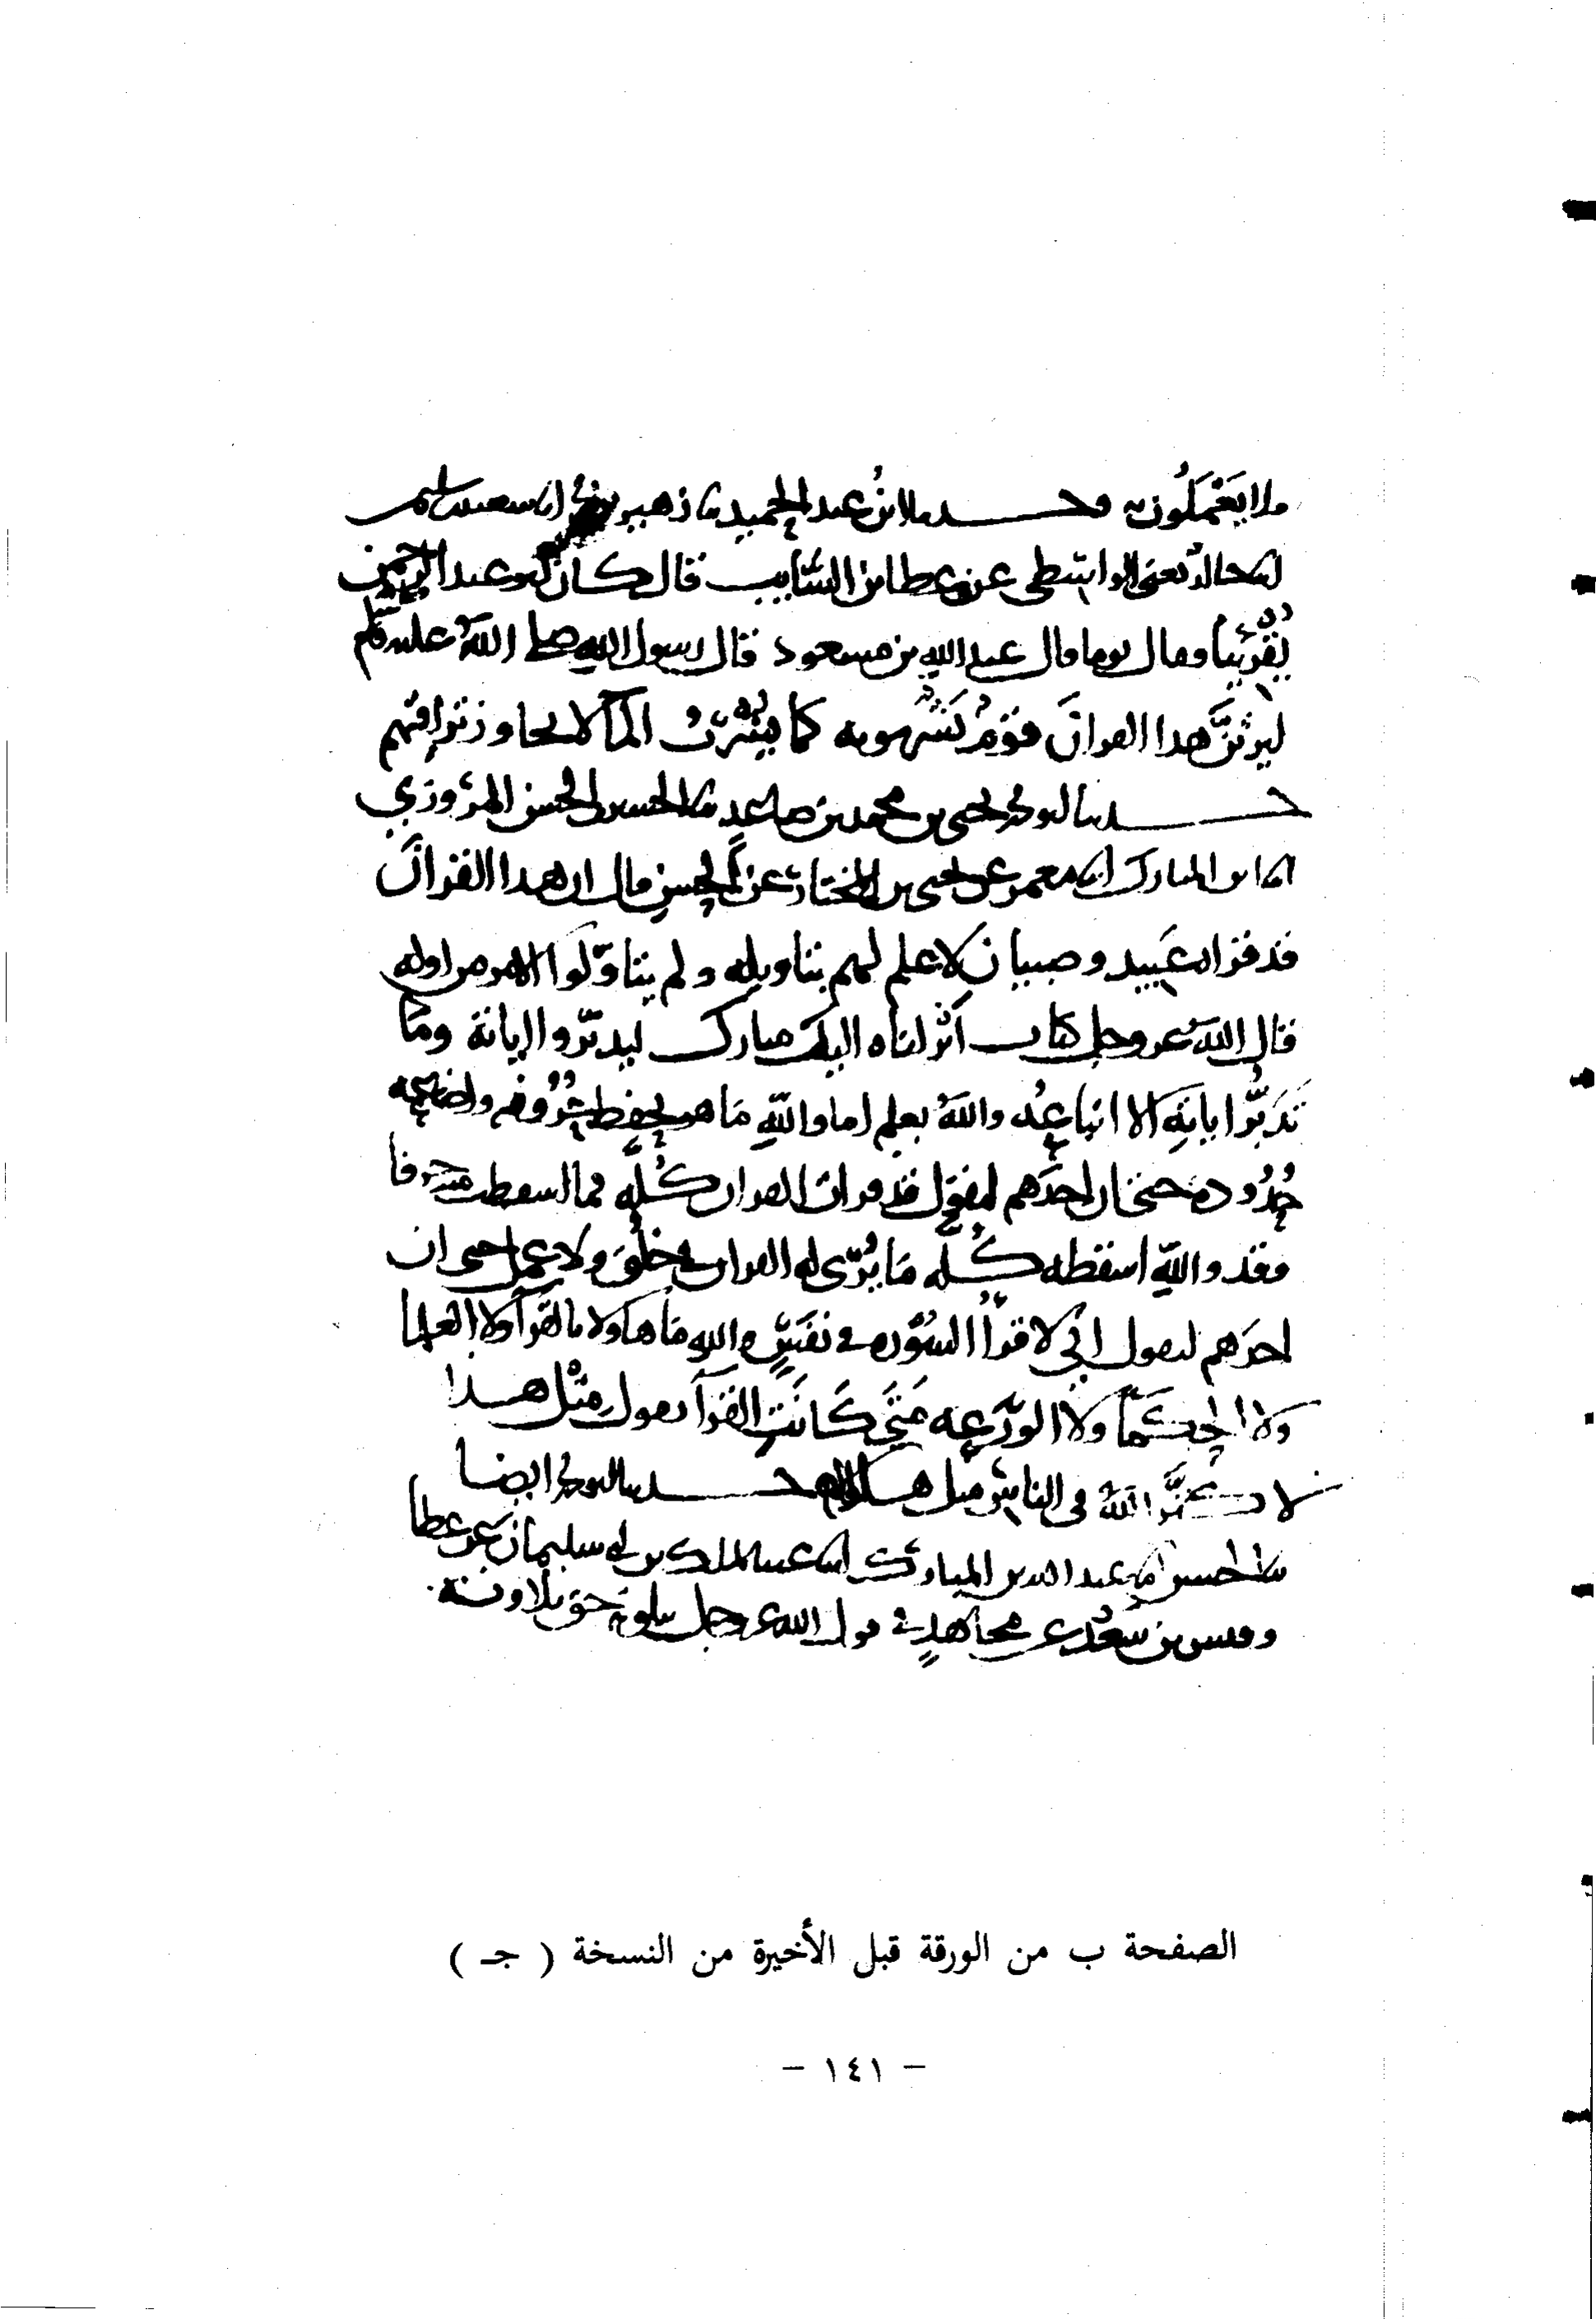 فلا يعملون به وحدثنا ابن عبد الحميد نا زهير بن انا سعيد بن سليمن
نا خالد يعني الواسطي عن عطا بن السايب قال كان ابو عبد الرحمن
يقرئنا وقال يوما قال عبد الله بن مسعود قال رسول الله صلى الله عليه وسلم
ليرثن هذا القران قوم يشربونه كما يشرب الما لا يجاوز تراقيهم
حدثنا ابو محمد يحيى بن محمد بن صاعد نا الحسين بن الحسن المروزي
انا ابن المبارك انا معمر عن يحيى بن المختار عن الحسن قال ان هذا القران
قد قراه عبيد وصبيان لا علم لهم بتاويله ولم يتاولوا الامر من اوله
قال الله عز وجل كتاب انزلناه اليك مبارك ليدبروا اياته وما
تدبر اياته الا اتباعه والله يعلم اما والله ما هو بحفظ حروفه واضاعة
حدوده حتى ان احدهم ليقول قد قرات القران كله فما اسقطت منه حرفا
وقد والله اسقطه كله ما يرى له القران في خلق ولا عمل حتى ان
احدهم ليقول اني لاقرا السورة في نفس والله ما هاولا بالقرا ولا العلما
ولا الحكما ولا الورعه متى كانت القرا تقول مثل هذا
لا كثر الله في الناس مثل هاولا حدثنا ابو محمد ايضا
نا الحسين انا عبد الله بن المبارك انا عبد الملك بن ابي سليمان عن عطا
وقيس بن سعد عن مجاهد في قول الله عز وجل يتلونه حق تلاوته
الصفحة ب من الورقة قبل الأخيرة من النسخة ( جـ )
– ١٤١ –